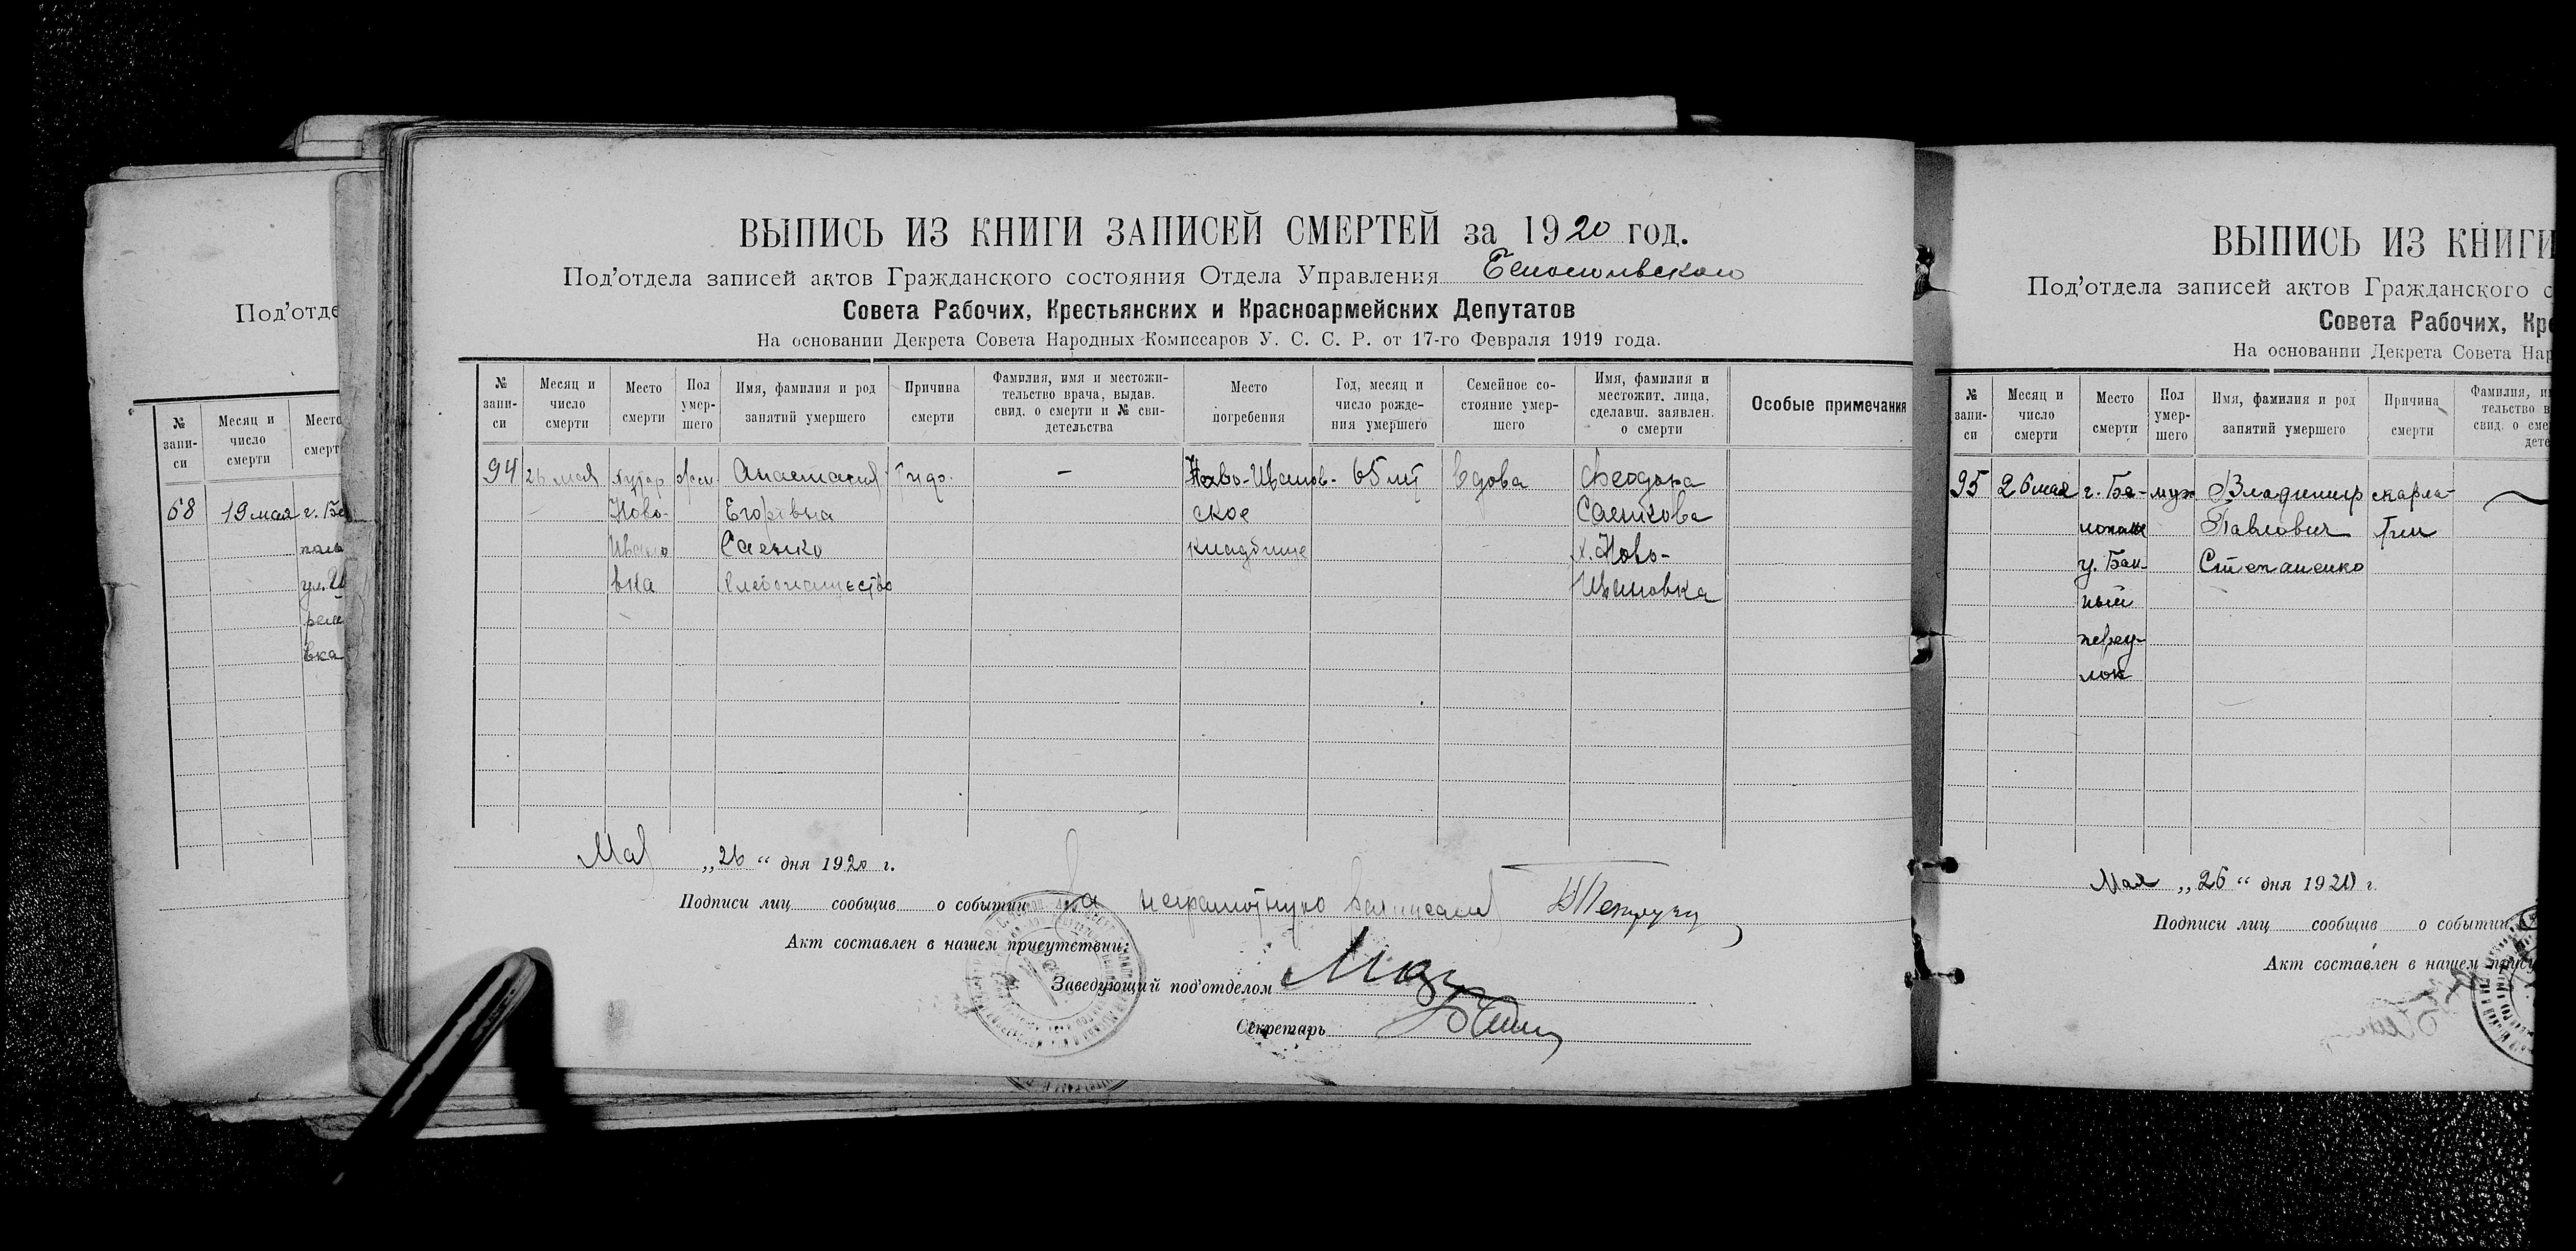 Под'отде
№ запи- си
Месяц и число смерти
Место смерт
68
19 мая
г. Ба
ул. И
вка
ВЫПИСЬ ИЗ КНИГИ ЗАПИСЕЙ СМЕРТЕЙ за 1920 год.
Под'отдела записей актов Гражданского состояния Отдела Управления
Совета Рабочих, Крестьянских и Красноармейских Депутатов
На основании Декрета Совета Народных Комиссаров У. С. С. Р. от 17-го Февраля 1919 года.
№ запи- си
Месяц и число смерти
Место смерти
Пол умер- шего
Имя, фамилия и род занятий умершего
Причина смерти
Фамилия, имя и местожи- тельство врача, выдав. свид. о смерти и № сви- детельства
Место погребения
Год, месяц и число рожде- ния умершего
Семейное со- стояние умер- шего
Имя, фамилия и местожит. лица, сделавш. заявлен. о смерти
Особые примечания
94
26 мая
Хутор
Ново-
Ивано
вка
жен
Анастасия
Егоровна
Саенко
хлебопашество
—
Ново-Иванов-
ское
кладбище
65 лет
вдова
Феодора
Саенкова
х. Ново-
Ивановка
Мая „26“ дня 1920 г.
Подписи лиц сообщив о событии За неграмотную расписался
Акт составлен в нашем присутствии:
Заведующий под'отделом
Секретарь
ВЫПИСЬ ИЗ КНИГИ
Под'отдела записей актов Гражданского с
Совета Рабочих, Кре
На основании Декрета Совета Нар
№ запи- си
Месяц и число смерти
Место смерти
Пол умер- шего
Имя, фамилия и род занятий умершего
Причина смерти
Фамилия, и тельство в свид. о сме дете
95
26 мая
г. Ба-
у. Бан-
ный
переу-
лок
муж
Владимир
Павлович
Степаненко
скарла-
тин
Мая „26“ дня 1920 г.
Подписи лиц сообщив о событии
Акт составлен в нашем прису